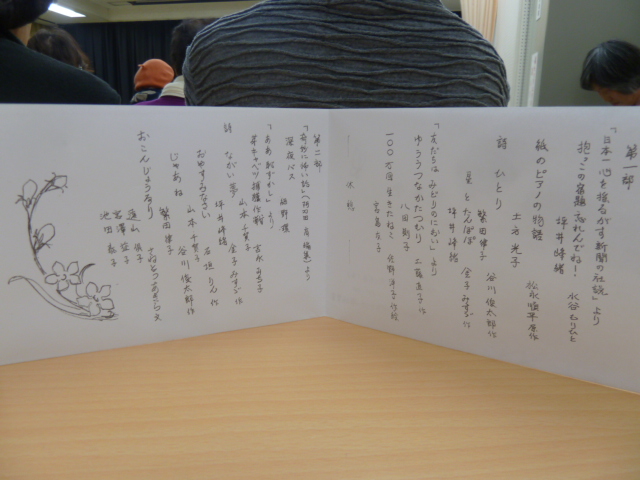 第一部
「日本一心を揺るがす新聞の社説」より
抱っこの宿題、忘れんでね！ 水谷もりひと
坪井峰緒
紙のピアノの物語 松永慎平原作
土方光子
詩 ひとり 谷川俊太郎作
繁田律子
星とたんぽぽ 金子みすゞ作
坪井峰緒
「友だちはみどりのにおい」より
ゆううつなかたつむり 工藤直子作
八田則子
一〇〇万回生きたねこ 佐野洋子作絵
宮島友子
― 休憩 ―
第二部
深夜バス
「ああ恥ずかし」より
芽キャベツ捕獲作戦
山本千賀子
詩 ながい夢 金子みすゞ作
坪井峰緒
おやすみなさい
山本千賀子
じゃあね 谷川俊太郎作
繁田律子
おこんじょうるり さねとうあきら文